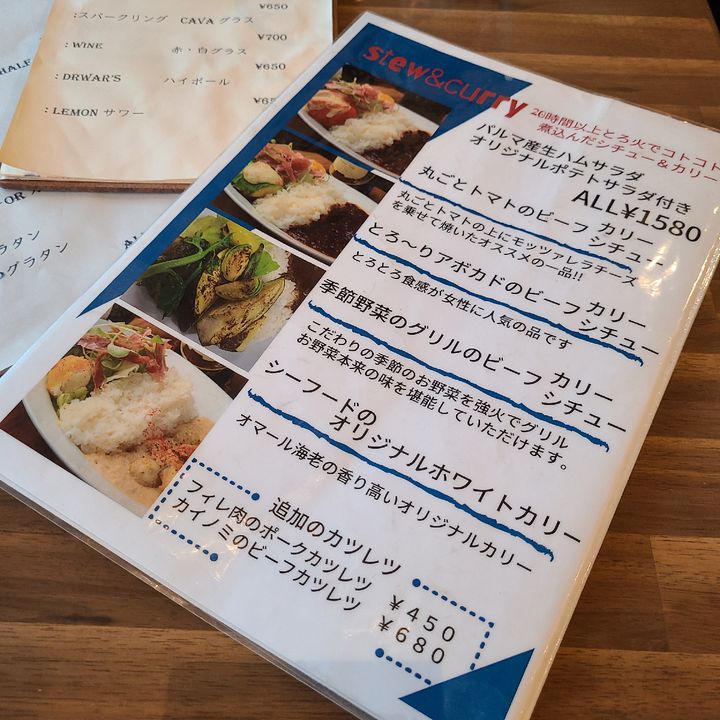 ¥650
:スパークリング CAVA グラス
¥700
:WINE 赤・白グラス
¥650
:DRWAR'S ハイボール
:LEMON サワー
stew&curry
20時間以上とろ火でコトコト
煮込んだシチュー&カリー
パルマ産生ハムサラダ
オリジナルポテトサラダ付き
ALL¥1580
丸ごとトマトのビーフ カリー
シチュー
丸ごとトマトの上にモッツァレラチーズ
を乗せて焼いたオススメの一品!!
とろ〜りアボカドのビーフ カリー
シチュー
とろとろ食感が女性に人気の品です
季節野菜のグリルのビーフ カリー
シチュー
こだわりの季節のお野菜を強火でグリル
お野菜本来の味を堪能していただけます。
シーフードの
オリジナルホワイトカリー
オマール海老の香り高いオリジナルカリー
追加のカツレツ
フィレ肉のポークカツレツ ¥450
カイノミのビーフカツレツ ¥680